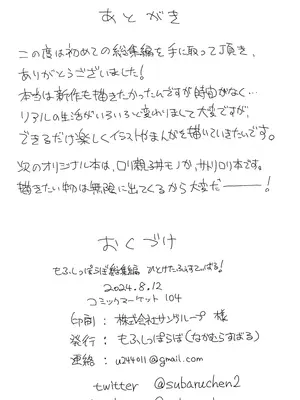 あとがき
この度は初めての総集編を手に取って頂き、
ありがとうございました!
本当は新作も描きたかったんですが時間がなく…
リアルの生活がいろいろと変わりまして大変ですが、
できるだけ楽しくイラストやまんがを描いていきたいです。
次のオリジナル本は、ロリ親子丼モノか、サトリロリ本です。
描きたい物は無限に出てくるから大変だ―――!
おくづけ
もふしっぽらぼ総集編
2024.8.12
コミックマーケット104
印刷: 株式会社サングループ 様
発行: もふしっぽらぼ(なかむらすばる)
連絡: u244011@gmail.com
twitter @subaruchen2